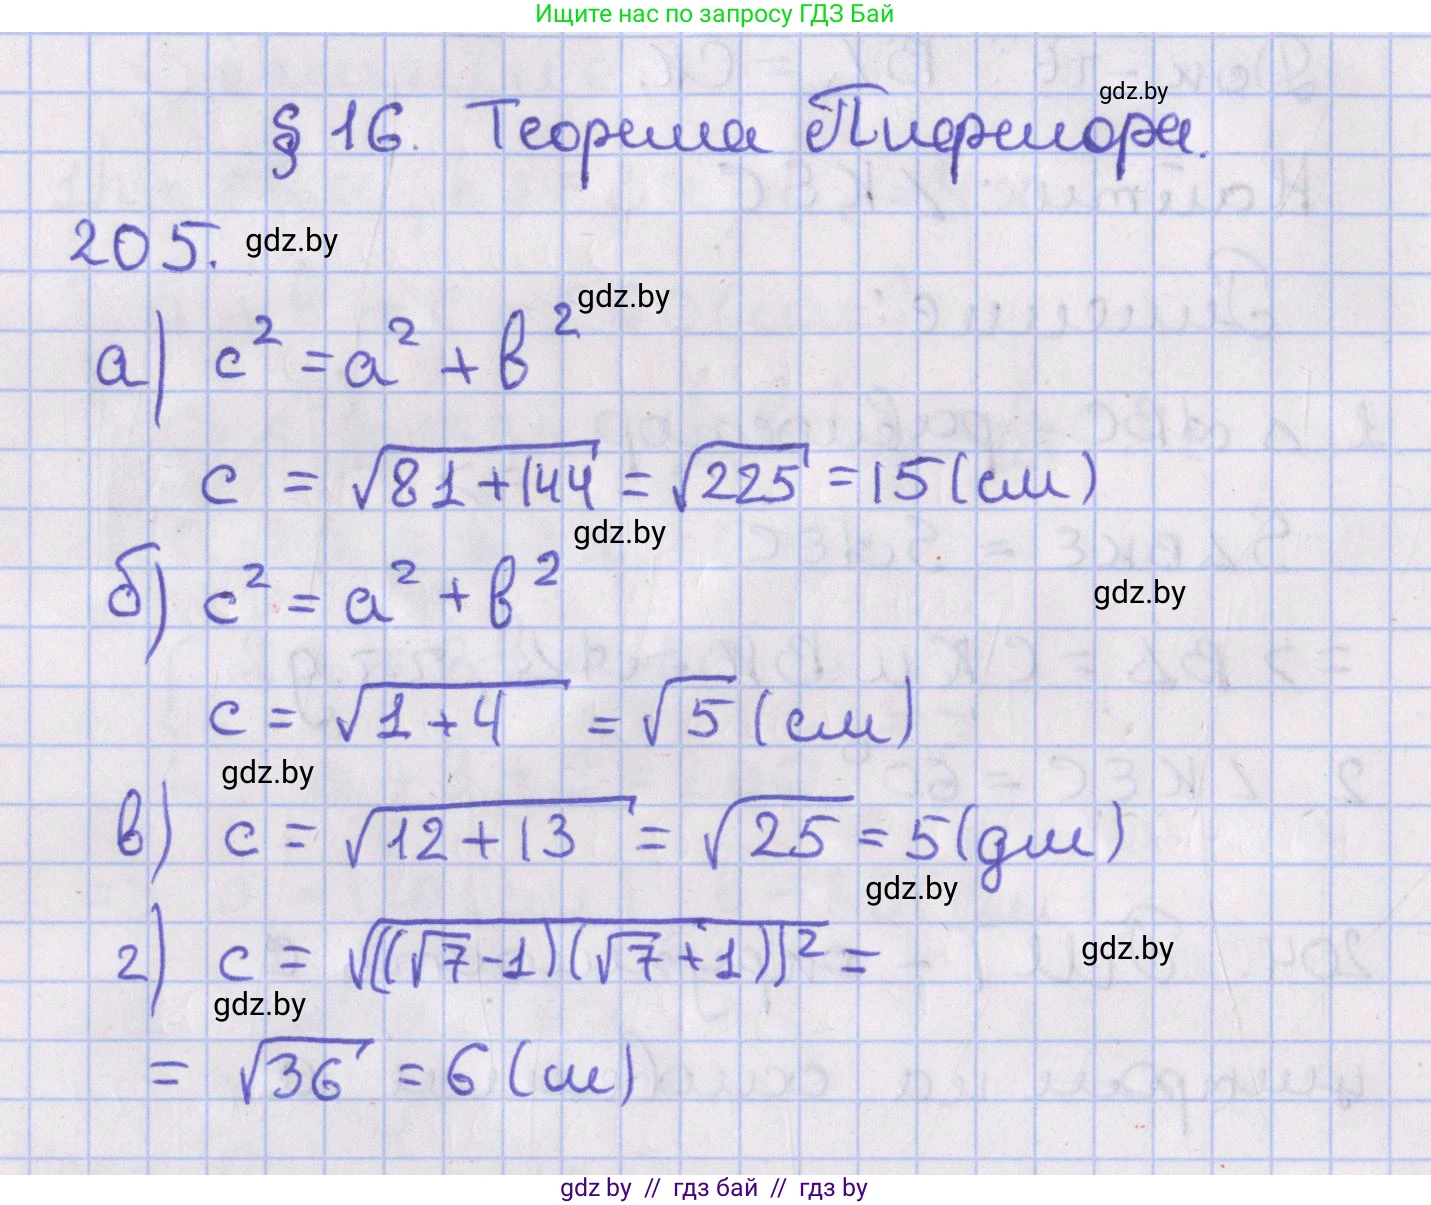 Ищите нас по запросу ГДЗ Бай
gdz.by
§ 16. Теорема Пифагора.
205. gdz.by
gdz.by
а) c² = a² + b²
c = √(81+144) = √225 = 15 (см)
gdz.by
б) c² = a² + b²
gdz.by
c = √(1+4) = √5 (см)
gdz.by
в) c = √(12+13) = √25 = 5 (дм)
gdz.by
г) c = √[(√7-1)(√7+1)]² =
gdz.by
gdz.by
= √36 = 6 (см)
gdz by // гдз бай // гдз by